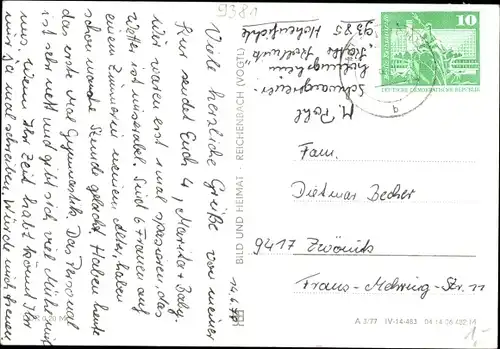 9381
M. Pohl
Schwangeren-
9385 Hohenfichte
10
DEUTSCHE DEMOKRATISCHE REPUBLIK
Viele herzliche Grüße von meiner
Kur sendet Euch 4, Marita + Baby.
Wir waren erst 1 mal spazieren, das
Wetter ist miserabel. Sind 6 Frauen auf
einem Zimmer in meinem Alter, haben
schon manche Stunde gelacht. Haben heute
das erste Mal Gymnastik. Das Personal
ist sehr nett und gibt sich viel Mühe mit
uns. Wenn Ihr Zeit habt könnt Ihr
mir ja mal schreiben. Würde mich freuen.
14.6.78
BILD UND HEIMAT REICHENBACH (VOGTL)
Fam.
Dietmar Becher
9417 Zwönitz
Franz-Mehring-Str. 11
A 3/77 IV-14-483
1,-